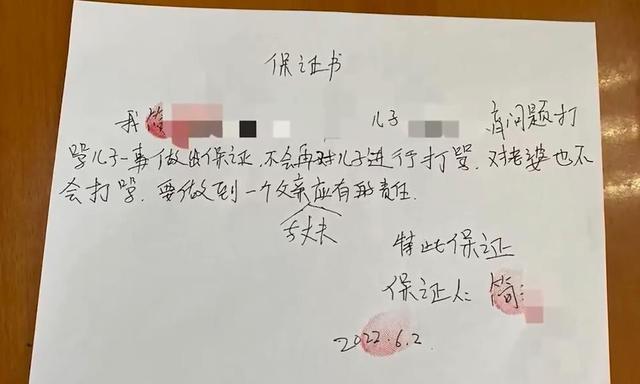 保证书
我简 儿子 育问题打
骂儿子一事做出保证,不会再对儿子进行打骂.对老婆也不
会打骂.要做到一个父亲应有的责任.
与丈夫
特此保证
保证人: 简
2022.6.2.